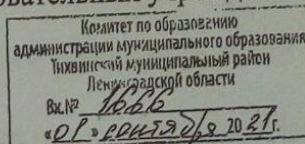 Комитет по образованию
администрации муниципального образования
Тихвинский муниципальный район
Ленинградской области
Вх.№ 1666
«01» сентября 2021г.